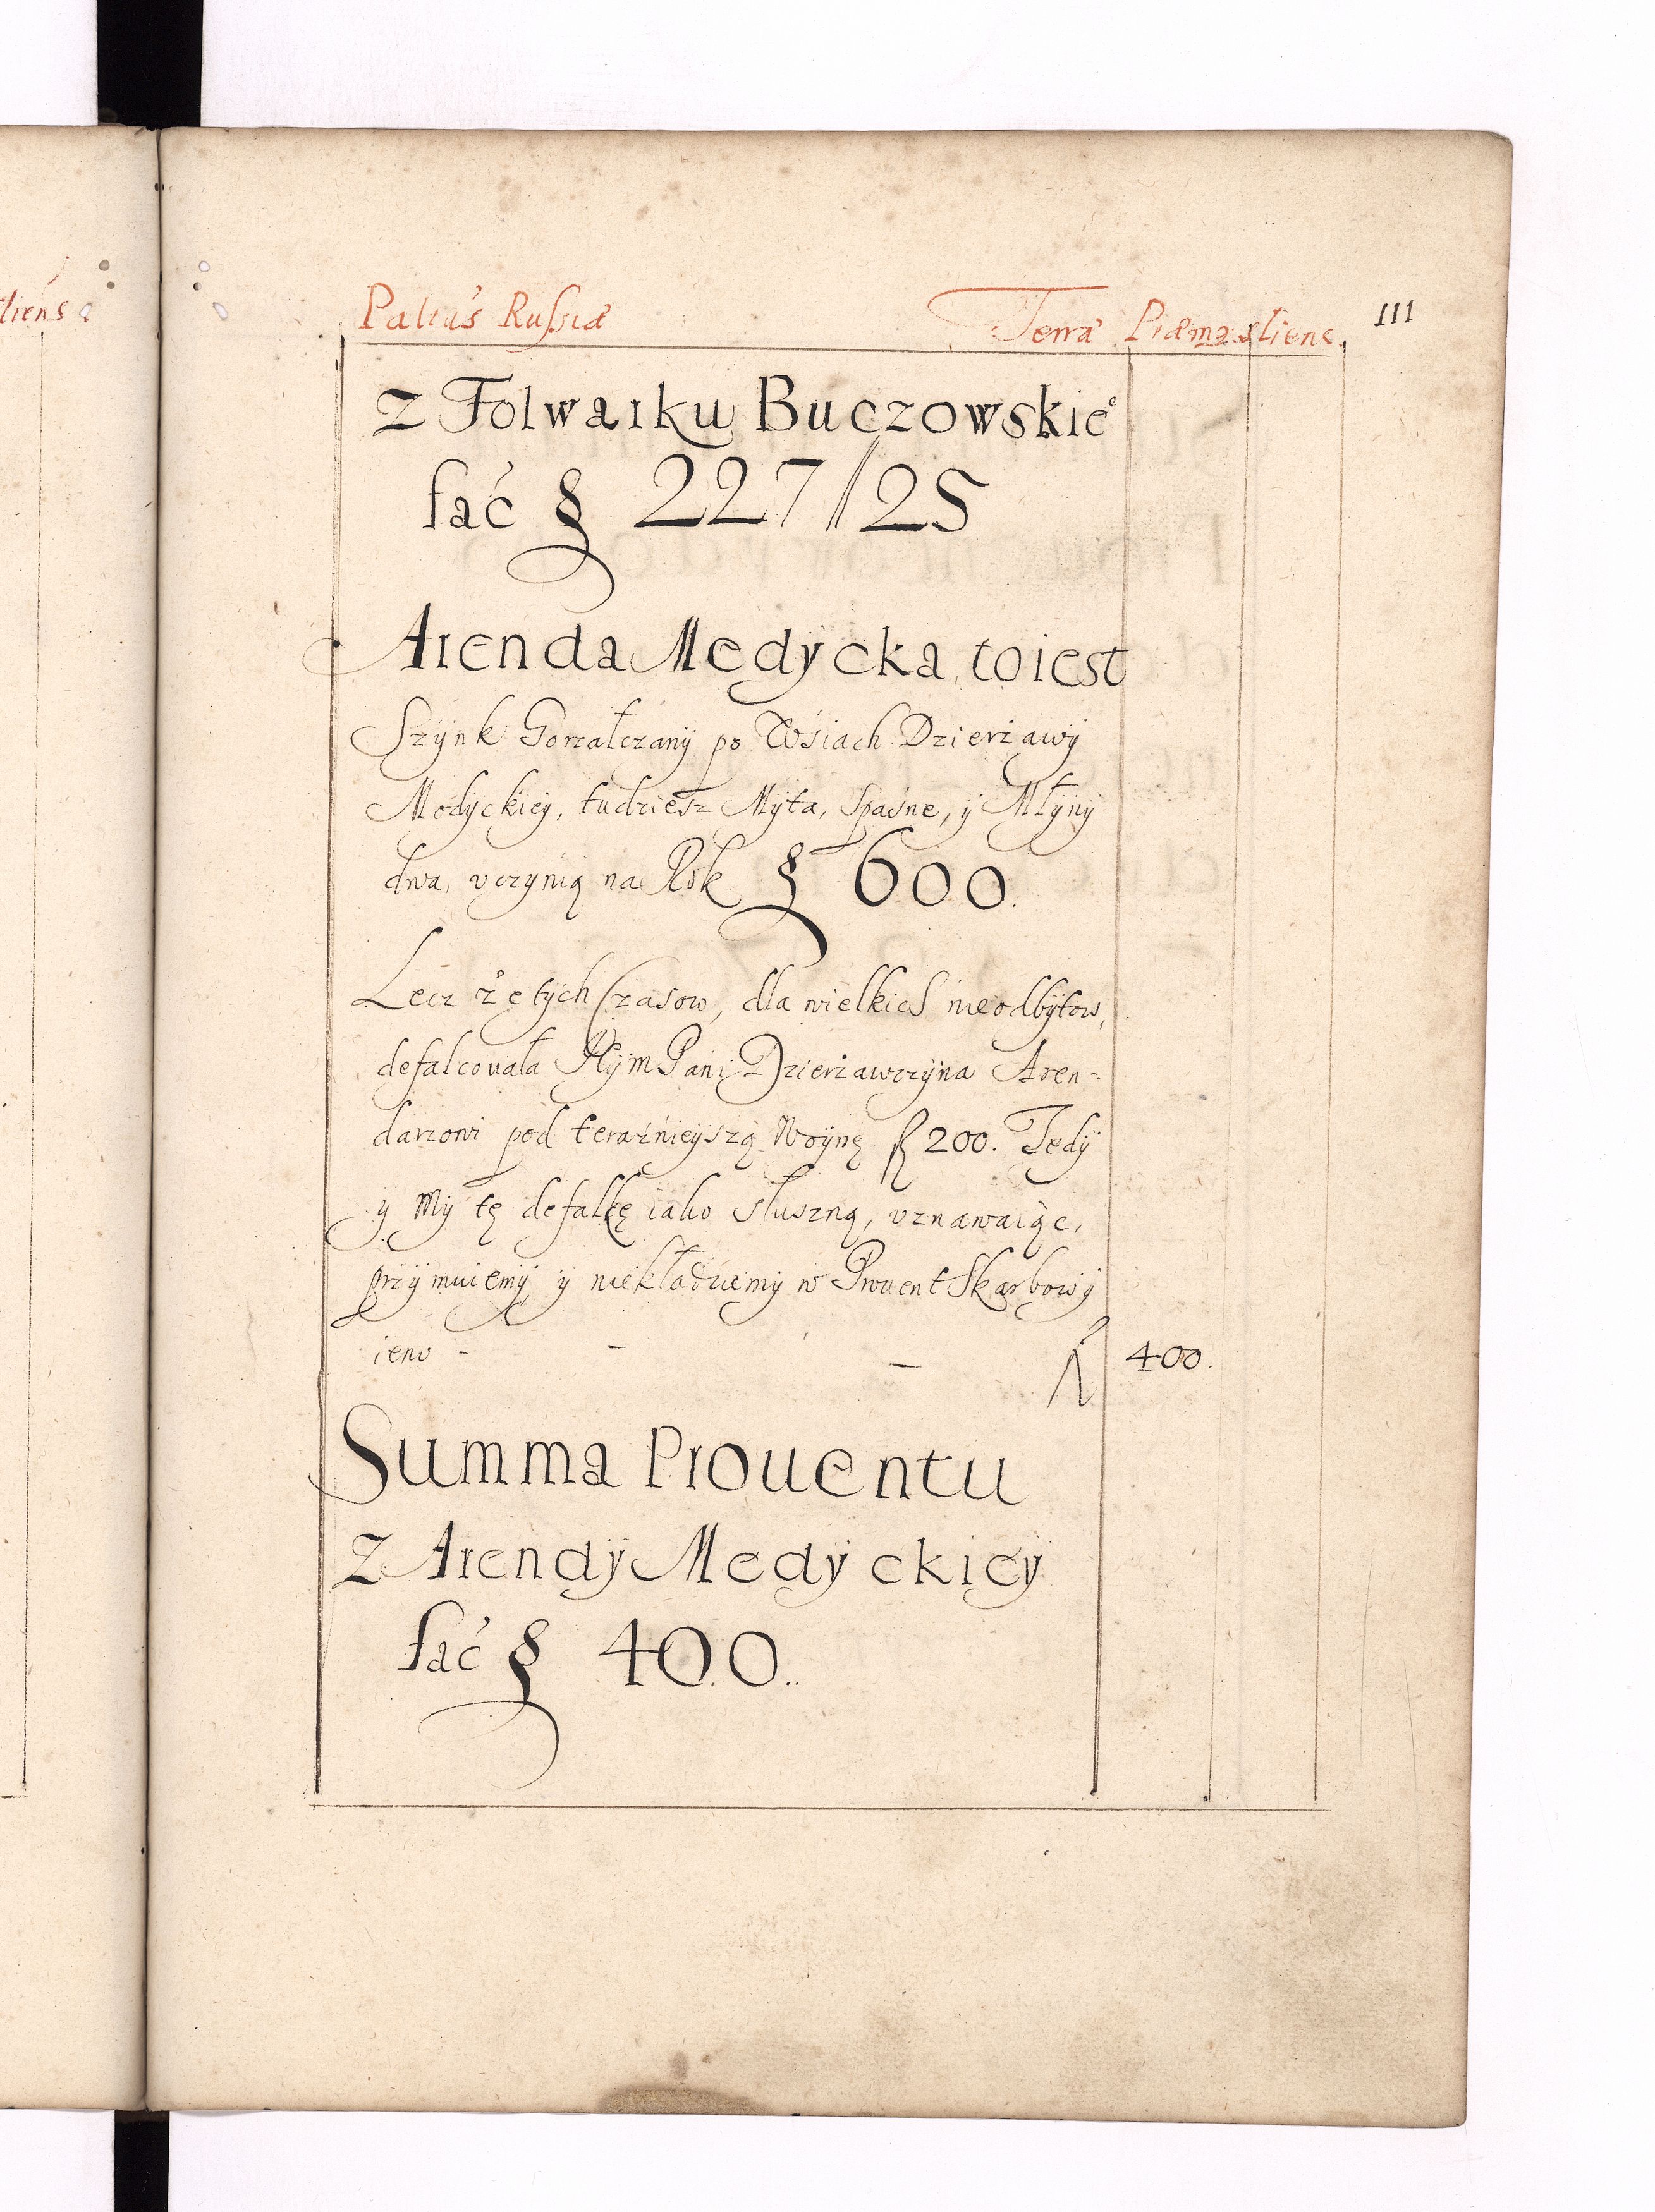 liens
Palt'us Russiæ
Terra Præmysliens. 111
z Folwarku Buczowskie
fać § 227/25
Arenda Medycka, to iest
Szÿnk Gorzałczanÿ po Wśiach Dzierżawÿ
Modÿckieÿ, tudziesz Mÿta, Spaśne, ÿ Młÿnÿ
dwa, vczÿnią na Rok § 600.
Lecz że tÿch Czasow, dla wielkich nieodbÿtow,
defalcowała Pani Dzierżawczÿna Aren-
darzowi pod teraźnieÿszą Woÿnę f 200. Tedÿ
ÿ Mÿ tę defalkę iako słuszną, vznawaiąc,
przÿmuiemÿ, ÿ niekładziemÿ w Prouent Skarbowÿ
ieno - - - f 400.
Summa Prouentu
Z Arendÿ Medÿckieÿ
fać § 400.